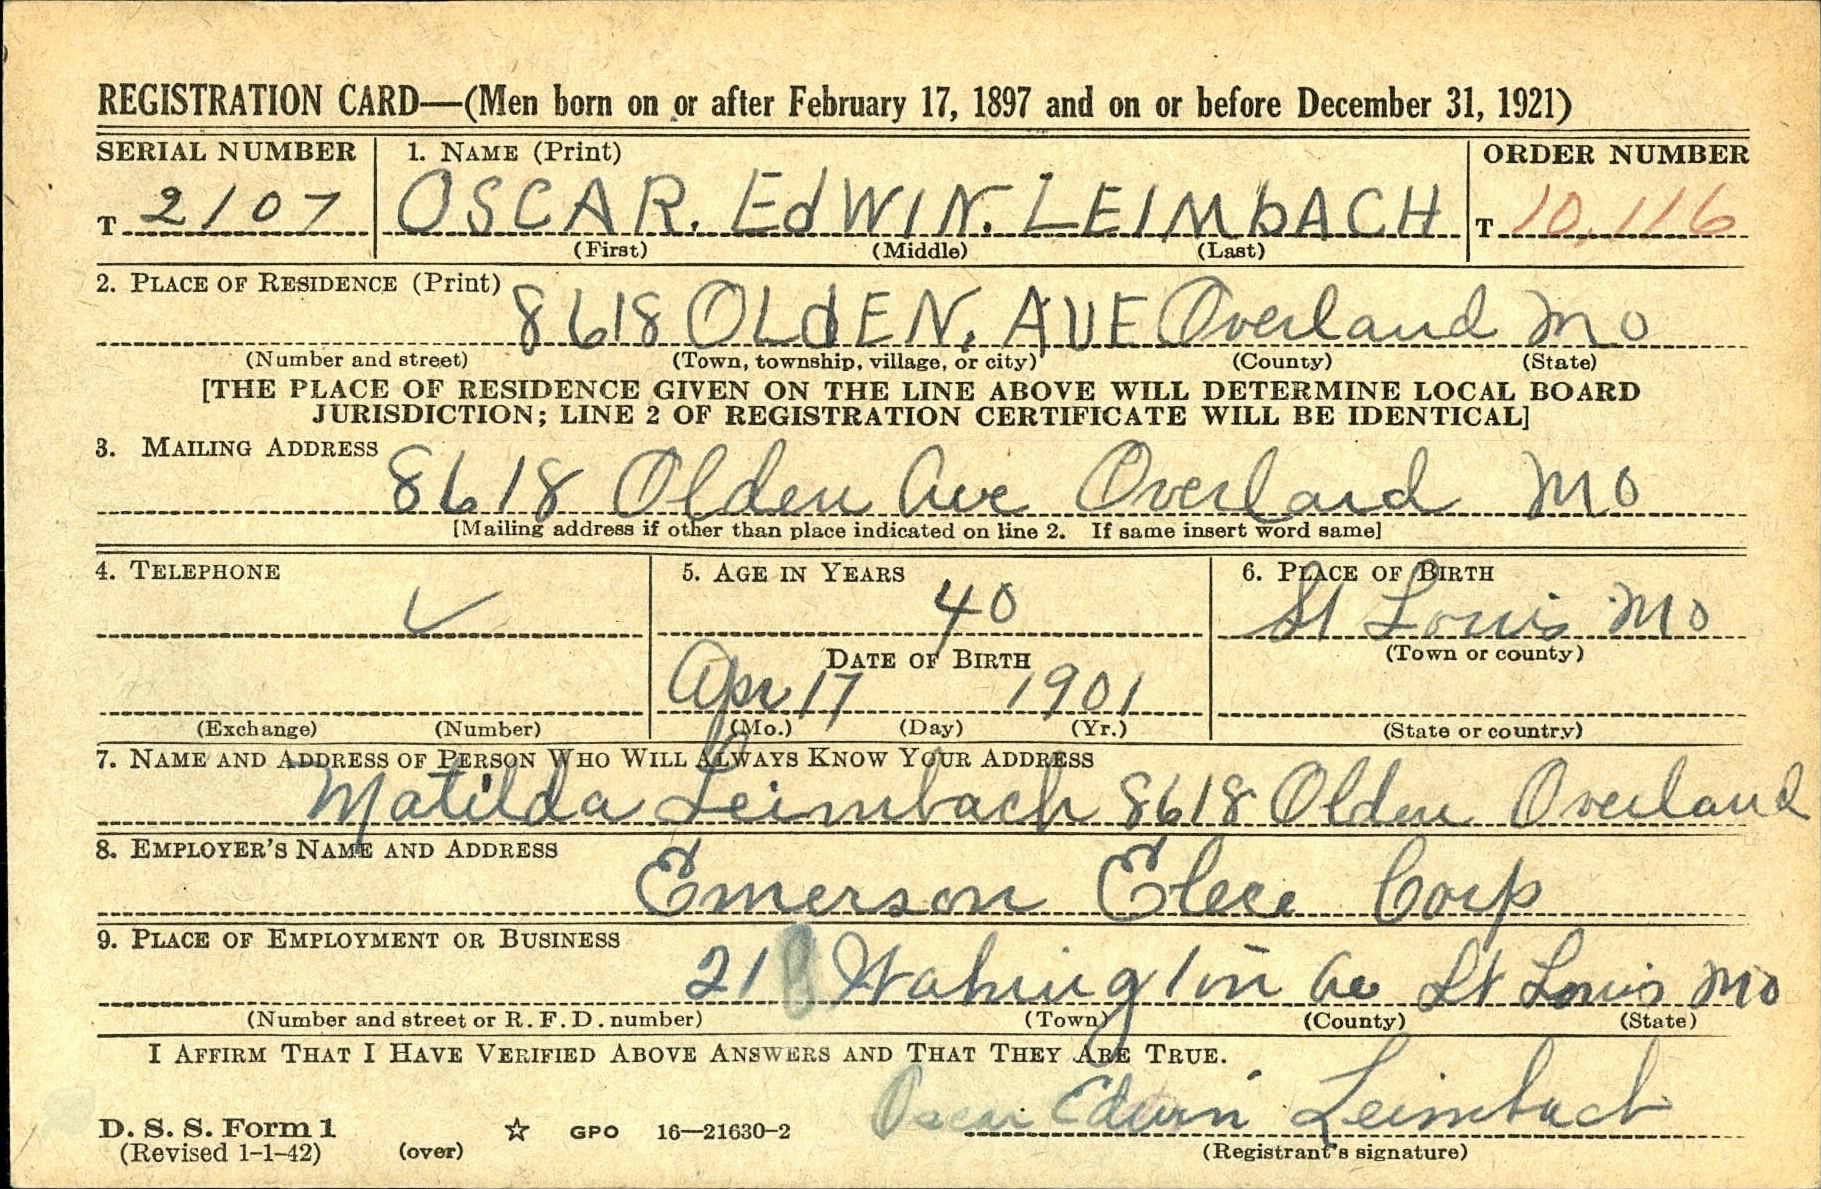 REGISTRATION CARD—(Men born on or after February 17, 1897 and on or before December 31, 1921)
SERIAL NUMBER 1. NAME (Print) ORDER NUMBER
T 2107 OSCAR. EdWIN. LEIMbACH T 10,116
(First) (Middle) (Last)
2. PLACE OF RESIDENCE (Print)
8618 OLdEN, AVE Overland Mo
(Number and street) (Town, township, village, or city) (County) (State)
[THE PLACE OF RESIDENCE GIVEN ON THE LINE ABOVE WILL DETERMINE LOCAL BOARD
JURISDICTION; LINE 2 OF REGISTRATION CERTIFICATE WILL BE IDENTICAL]
3. MAILING ADDRESS
8618 Olden Ave Overland Mo
[Mailing address if other than place indicated on line 2. If same insert word same]
4. TELEPHONE 5. AGE IN YEARS 6. PLACE OF BIRTH
40 St Louis Mo
DATE OF BIRTH (Town or county)
Apr 17 1901
(Exchange) (Number) (Mo.) (Day) (Yr.) (State or country)
7. NAME AND ADDRESS OF PERSON WHO WILL ALWAYS KNOW YOUR ADDRESS
Matilda Leimbach 8618 Olden Overland
8. EMPLOYER'S NAME AND ADDRESS
Emerson Elece Corp
9. PLACE OF EMPLOYMENT OR BUSINESS
Wahington Ae St Louis Mo
(Number and street or R. F. D. number) (Town) (County) (State)
I AFFIRM THAT I HAVE VERIFIED ABOVE ANSWERS AND THAT THEY ARE TRUE.
Oscar Edwin Leimbach
D. S. S. Form 1 ☆ GPO 16—21630-2
(Revised 1-1-42) (over) (Registrant's signature)